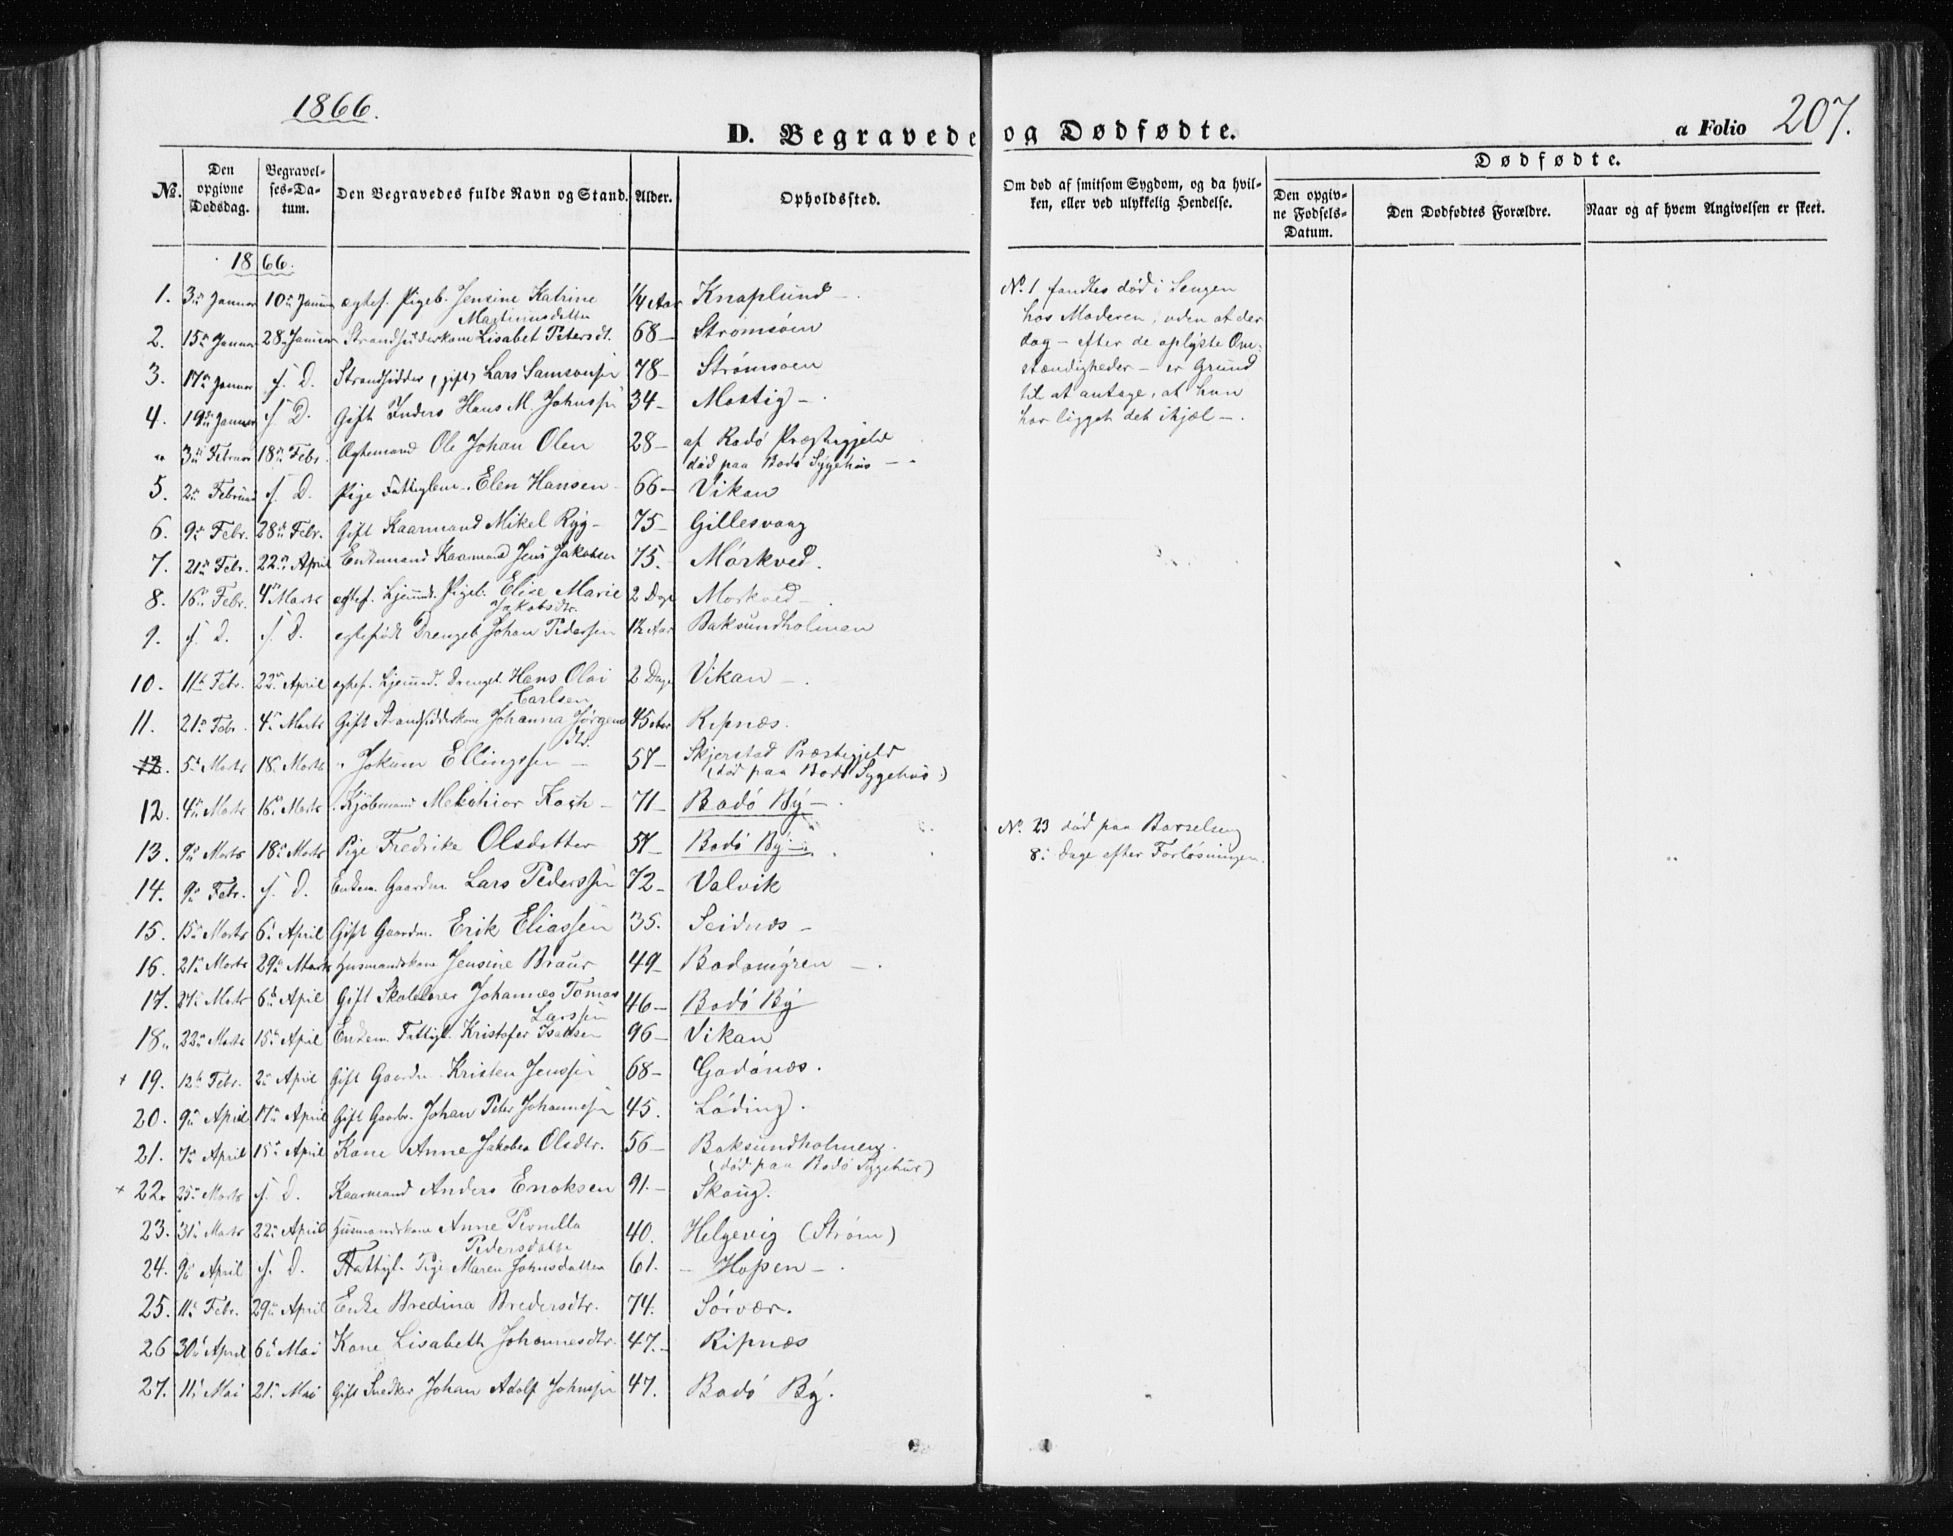 1866.
D. Begravede og Dødfødte.
a Folio 207.
No.
Den opgivne Dødsdag.
Begravelses-Datum.
Den Begravedes fulde Navn og Stand.
Alder.
Opholdssted.
Om død af smitsom Sygdom, og da hvilken, eller ved ulykkelig Hendelse.
Dødfødte.
Den opgivne Fødsels-Datum.
Den Dødfødtes Forældre.
Naar og af hvem Angivelsen er skeet.
1866.
1. 3die Januar 10de Januar ægtef. Pigeb. Jensine Katrine Martinusdatter 1/4 Aar Knaplund
2. 15de Januar 28de Januar Strandsidderkone Lisabet Petersdt. 68 Strømsøen
3. 17de Januar s. D. Strandsidder (gift) Lars Samsonsen 78 Strømsøen
4. 19de Januar s. D. Gift Inders Hans M. Johnsen 34 Mostig
" 3die Februar 18de Febr. Ægtemand Ole Johan Olen 28 af Rødø Præstegjeld død paa Bodø Sygehus
5. 2den Februar s. D. Pige Fattiglem Elen Hansen 66 Vikan
6. 9de Febr. 28de Febr. Gift Kaarmand Mikel Ryg 75 Gillesvaag
7. 21de Febr. 22de April Enkemand Kaarmand Jens Jakobsen 75. Mørkved.
8. 16de Febr. 4de Marts ægtef. hjemmd. Pigeb. Elise Marie Jakobsdtr. 2 Dage Mørkved
9. s. D. s. D. egtefødt Drengeb. Johan Pedersen 1 1/2 Aar Baksundholmen
10. 11te Febr. 22de April egtef. hjemmd. Drengeb. Hans Olai Carlsen 2 Dage Vikan
11. 21de Febr. 4de Marts Gift Strandsidderkone Johanna Jørgensdtr. 45 Aar Ripnæs.
12. 5te Marts 18de Marts " Jokum Ellingsen 57 Skjerstad Præstegjeld (død paa Bodø Sygehus)
12. 4de Marts 16de Marts Kjøbmand Melchior Koch 71 Bodø By
13. 9de Marts 18de Marts Pige Fredrike Olsdatter 57 Bodø By
14. 9de Febr. s. D. Enkem. Gaardm. Lars Pederssen 72 Valvik
15. 15de Marts 6te April Gift Gaardm. Erik Eliassen 35. Seidnæs
16. 21de Marts 29de Marts Husmandskone Jensine Braur 49 Bodømyren
17. 27de Marts 6te April Gift Skolelærer Johannes Tomas Larssen 46 Bodø By
18. 22de Marts 15de April Enkem. Fattigl. Kristofer Isaksen 96 Vikan
+ 19. 12te Febr. 2den April Gift Gaardm. Kristen Jenssen 68 Godønæs.
20. 9de April 17de April Gift Gaardbr. Johan Peter Johannesen 45. Løding.
21. 7de April 15de April Kone Anne Jakobea Olsdtr. 56 Baksundholmen. (død paa Bodø Sygehus)
+ 22. 25de Marts s. D. Kaarmand Anders Enoksen 91. Skoug.
23. 31te Marts 22de April Husmandskone Anne Pernilla Pedersdatter 40. Helgevig (Strøm)
24. 9de April s. D. Fattigl. Pige Maren Johnsdatter 61. Hopen
25. 11te Febr. 29de April Enke Bredina Bredersdtr. 74. Sørvær.
26 30te April 6te Mai Kone Lisabeth Johannesdtr. 47. Ripnæs
27. 11te Mai 21de Mai Gift Snedker Johan Adolf Johnsen 47. Bodø By.
No. 1 fandtes død i Sengen
hos Moderen, uden at der
dog – efter de oplyste Om-
stændigheder – er Grund
til at antage, at hun
har ligget det ihjæl.
No. 23 død paa Barselseng
8te Dage efter Forløsningen.